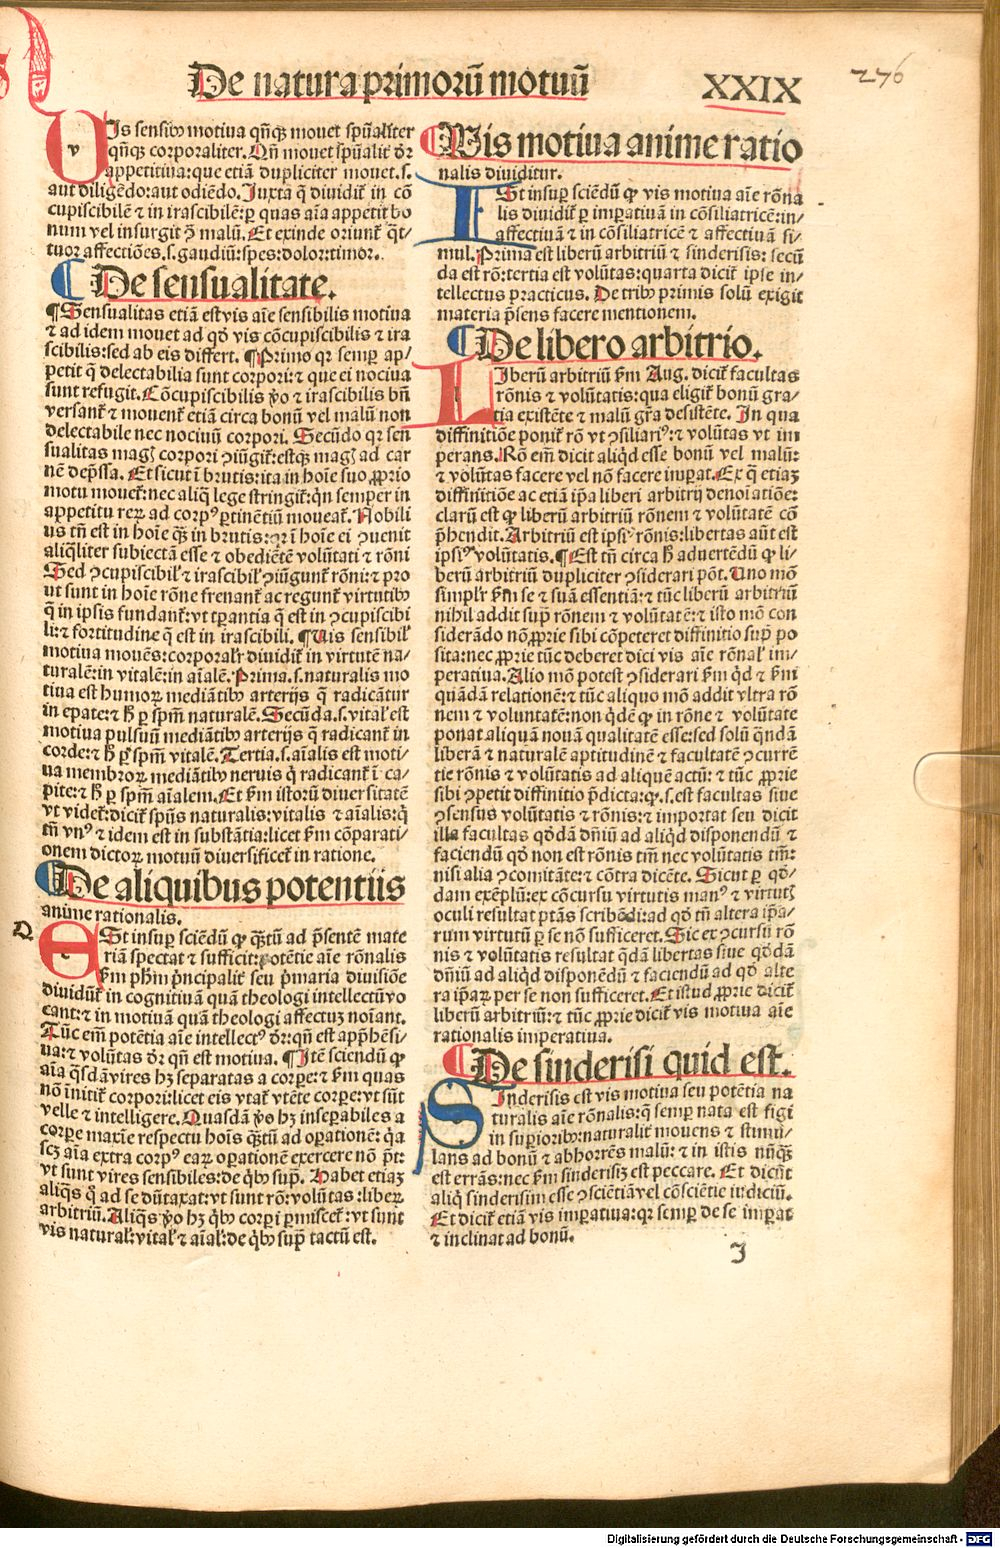 De natura primorū motuū
XXIX
276
VIs sensiꝰ motiua qn̄qꝫ mouet spūaliter
qn̄qꝫ corporaliter. Qn̄ mouet spūalit̄ dr̄
appetitiua: que etiā dupliciter mouet. s.
aut diligēdo: aut odiēdo. Juxta q̄ diuidit᷑ in cō
cupiscibilē ⁊ in irascibilē: ꝑ quas aīa appetit bo
num vel insurgit ꝯ̄ malū. Et exinde oriunt᷑ q̄t-
tuor affectiōes. s. gaudiū: spes: dolor: timor.
¶ De sensualitate.
¶ Sensualitas etiā est vis aīe sensibilis motiua
⁊ ad idem mouet ad qd̄ vis cōcupiscibilis ⁊ ira
scibilis: sed ab eis differt. ¶ Primo qꝛ semꝑ ap-
petit q̄ delectabilia sunt corpori: ⁊ que ei nociua
sunt refugit. Cōcupiscibilis v̄o ⁊ irascibilis bn̄
versant᷑ ⁊ mouent᷑ etiā circa bonū vel malū non
delectabile nec nociuū corpori. Secūdo qꝛ sen
sualitas magꝭ corpori ꝯiūgit᷑: estqꝫ magꝭ ad car
nē dep̄ssa. Et sicut ī brutis: ita in hoīe suo ꝓprio
motu mouet᷑: nec aliq̄ lege stringit᷑: qn̄ semper in
appetitu reꝝ ad corpꝰ ꝑtinētiū moueat᷑. Nobili
us tn̄ est in hoīe qꝫ in brutis: qꝛ ī hoīe ei ꝯuenit
aliqͣliter subiectā esse ⁊ obediētē volūtati ⁊ rōni
Sed ꝯcupiscibil᷑ ⁊ irascibil᷑ ꝯiūgunt᷑ rōni: ⁊ pro
ut sunt in hoīe rōne frenant᷑ ac regunt᷑ virtutibꝰ
q̄ in ipsis fundant᷑: vt tꝑantia q̄ est in ꝯcupiscibi
li: ⁊ fortitudine q̄ est in irascibili. ¶ Uis sensibil᷑
motiua mouēs: corporalr̄ diuidit᷑ in virtutē na-
turalē: in vitalē: in aīalē. Prima. s. naturalis mo
tiua est humoꝝ mediātibꝰ arterijs q̄ radicātur
in epate: ⁊ h̄ ꝑ spm̄ naturalē. Secūda. s. vital᷑ est
motiua pulsuū mediātibꝰ arterijs q̄ radicant᷑ in
corde: ⁊ h̄ ꝑ spm̄ vitalē. Tertia. s. aīalis est moti-
ua membroꝝ mediātibꝰ neruis q̄ radicant᷑ ī ca-
pite: ⁊ h̄ ꝑ spm̄ aīalem. Et ẜm istorū diuersitatē
vt videt᷑: dicit᷑ spūs naturalis: vitalis ⁊ aīalis: q̄
tn̄ vnꝰ ⁊ idem est in substātia: licet ẜm cōparati-
onem dictoꝝ motuū diuersificet᷑ in ratione.
¶ De aliquibus potentiis
anime rationalis.
Q
ESt insuꝑ sciēdū ꝙ qꝫtū ad p̄sentē mate
riā spectat ⁊ sufficit: potētie aīe rōnalis
ẜm phm̄ pͥncipalit̄ seu pͥmaria diuisiōe
diuidūt᷑ in cognitiuā quā theologi intellectū vo
cant: ⁊ in motiuā quā theologi affectuꝫ noīant.
Tūc em̄ potētia aīe intellectꝰ dr̄: qn̄ est app̄hēsi-
ua: ⁊ volūtas dr̄ qn̄ est motiua. ¶ Itē sciendū ꝙ
aīa qͣsdā vires hꝫ separatas a corꝑe: ⁊ ẜm quas
nō īnitit᷑ corpori: licet eis vtat᷑ vtēte corꝑe: vt sūt
velle ⁊ intelligere. Quasdā v̄o hꝫ inseꝑabiles a
corꝑe maxīe respectu hoīs qꝫtū ad oꝑationē: qͥa
scꝫ aīa extra corpꝰ eaꝝ oꝑationē exercere nō p̄t:
vt sunt vires sensibiles: de qͥbꝰ suꝑ. Habet etiaꝫ
aliqͣs q̄ ad se dūtaxat: vt sunt rō: volūtas: liberꝝ
arbitriū. Aliqͣs v̄o hꝫ qͥbꝰ corpi ꝑmiscet᷑: vt sunt
vis natural᷑: vital᷑ ⁊ aīal᷑: de qͥbꝰ suꝑ tactū est.
¶ Vis motiua anime ratio
nalis diuiditur.
ESt insuꝑ sciēdū ꝙ vis motiua aīe rōna
lis diuidit᷑ ꝑ imꝑatiuā in cōsiliatricē: in-
affectiuā ⁊ in cōsiliatricē ⁊ affectiuā si-
mul. Prima est liberū arbitriū ⁊ sinderisis: secū
da est rō: tertia est volūtas: quarta dicit᷑ ipse in-
tellectus practicus. De tribꝰ primis solū exigit
materia p̄sens facere mentionem.
¶ De libero arbitrio.
LIberū arbitriū ẜm Aug. dicit᷑ facultas
rōnis ⁊ volūtatis: qua eligit᷑ bonū gra-
tia existēte ⁊ malū gr̄a desistēte. In qua
diffinitiōe ponit᷑ rō vt ꝯsiliariꝰ: ⁊ volūtas vt im
perans. Rō em̄ dicit aliqd̄ esse bonū vel malū:
⁊ volūtas facere vel nō facere imꝑat. Ex q̄ etiaꝫ
diffinitiōe ac etiā ip̄a liberi arbitrij denoīatiōe:
clarū est ꝙ liberū arbitriū rōnem ⁊ volūtatē cō
p̄hendit. Arbitriū est ipsiꝰ rōnis: libertas aūt est
ipsiꝰ volūtatis. ¶ Est tn̄ circa h̄ aduertēdū ꝙ li-
berū arbitriū dupliciter ꝯsiderari pōt. Uno mō
simplr̄ ẜm se ⁊ suā essentiā: ⁊ tūc liberū arbitriū
nihil addit suꝑ rōnem ⁊ volūtatē: ⁊ isto mō con
siderādo nō ꝓprie sibi cōpeteret diffinitio suꝑ po
sita: nec ꝓprie tūc deberet dici vis aīe rōnal᷑ im-
peratiua. Alio mō potest ꝯsiderari ẜm qd̄ ⁊ ẜm
quādā relationē: ⁊ tūc aliquo mō addit vltra rō
nem ⁊ voluntatē: non qͥdē ꝙ in rōne ⁊ volūtate
ponat aliquā nouā qualitatē esse: sed solū qͣndā
liberā ⁊ naturalē aptitudinē ⁊ facultatē ꝯcurrē
tie rōnis ⁊ volūtatis ad aliquē actū: ⁊ tūc ꝓprie
sibi ꝯpetit diffinitio p̄dicta: ꝙ. s. est facultas siue
ꝯsensus volūtatis ⁊ rōnis: ⁊ importat seu dicit
illa facultas qd̄dā dn̄iū ad aliqd̄ disponendū ⁊
faciendū qd̄ non est rōnis tm̄ nec volūtatis tm̄:
nisi alia ꝯcomitāte: ⁊ cōtra dicēte. Sicut ꝑ qd̄-
dam exēplū: ex cōcursu virtutis manꝰ ⁊ virtutꝭ
oculi resultat ptās scribēdi: ad qd̄ tn̄ altera ip̄a-
rum virtutū ꝑ se nō sufficeret. Sic ex ꝯcursu rō
nis ⁊ volūtatis resultat qͣdā libertas siue qd̄dā
dn̄iū ad aliqd̄ disponēdū ⁊ faciendū ad qd̄ alte
ra ip̄aꝝ per se non sufficeret. Et istud ꝓprie dicit᷑
liberū arbitriū: ⁊ tūc ꝓprie dicit᷑ vis motiua aīe
rationalis imperatiua.
¶ De sinderisi quid est.
SInderisis est vis motiua seu potētia na
turalis aīe rōnalis: q̄ semꝑ nata est figi
in suꝑioribꝰ: naturalit̄ mouens ⁊ stimu-
lans ad bonū ⁊ abhorrēs malū: ⁊ in istis nūqꝫ
est errās: nec ẜm sinderisiꝫ est peccare. Et dicūt
aliq̄ sinderisim esse ꝯsciētiā vel cōsciētie iudiciū.
Et dicit᷑ etiā vis imꝑatiua: qꝛ semꝑ de se imꝑat
⁊ inclinat ad bonū.
J
Digitalisierung gefördert durch die Deutsche Forschungsgemeinschaft - DFG